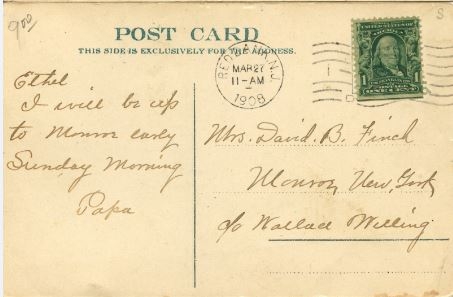 900
S
POST CARD
THIS SIDE IS EXCLUSIVELY FOR THE ADDRESS.
MAR 27
11-AM
1908
1
1
Ethel
I will be up
to Monroe early
Sunday Morning
Papa
Mrs. David. B. Finch
Monroe, New York
c/o Wallace Welling